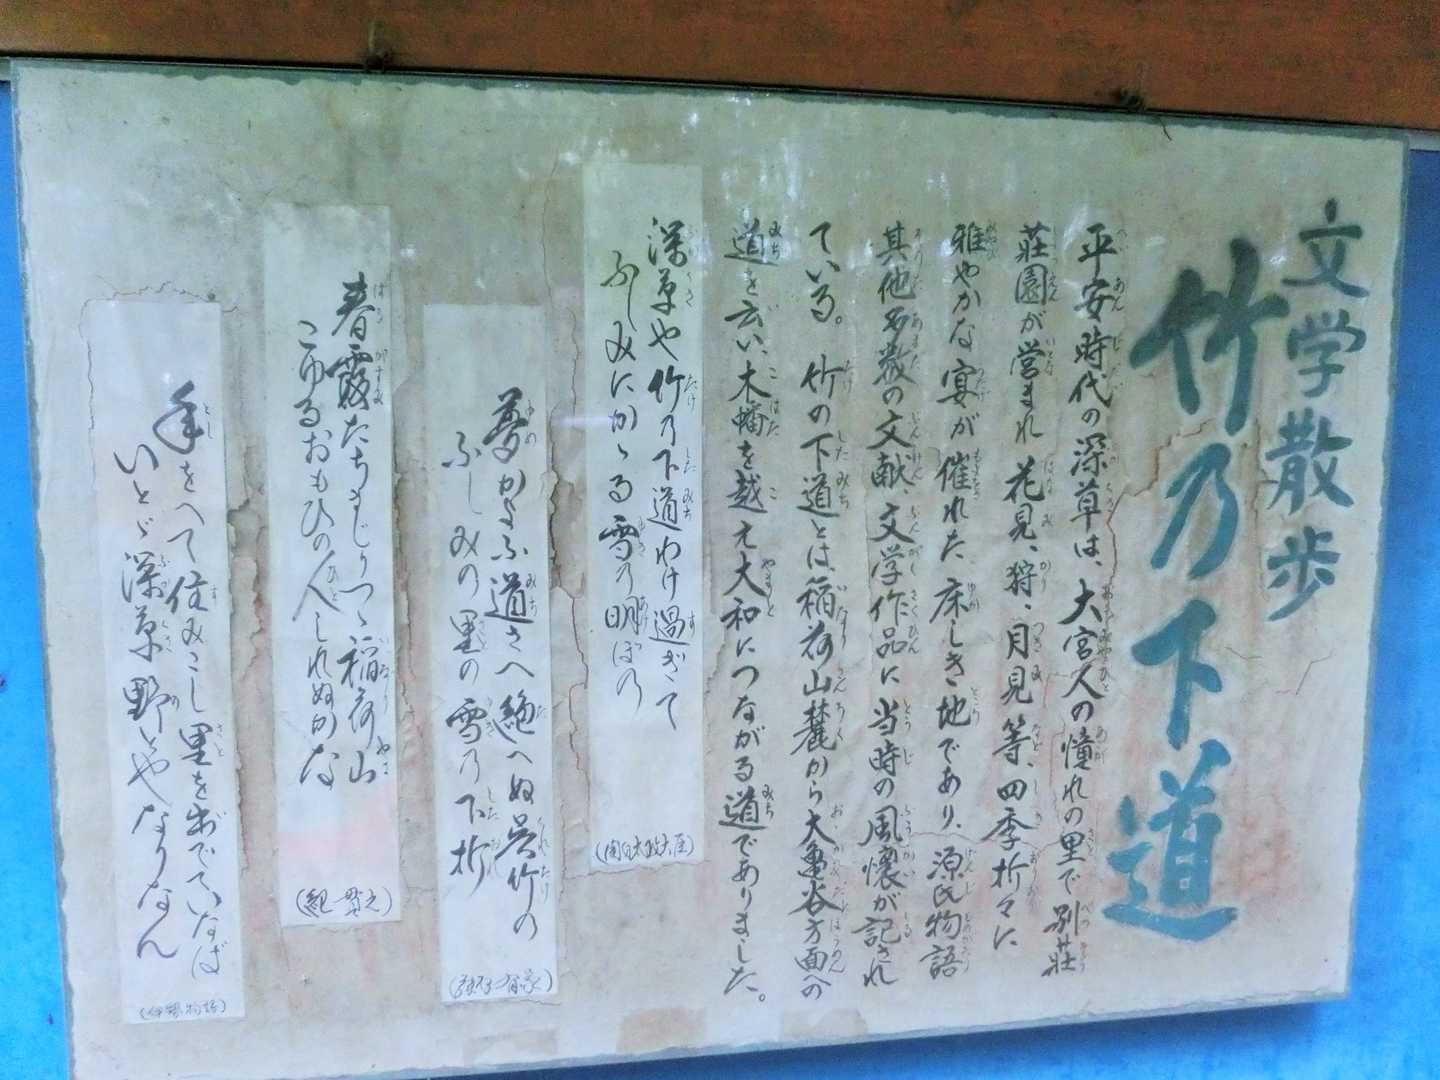 文学散歩
竹乃下道
平安時代の深草は、大宮人の憧れの里で別荘
荘園が営まれ 花見、狩、月見等、四季折々に
雅やかな宴が催れた、床しき地であり、源氏物語
其他名数の文献、文学作品に当時の風懐が記され
ている。竹の下道とは、稲荷山麓から大亀谷方面への
道を云い、木幡を越え大和につながる道でありました。
深草や竹乃下道わけ過ぎて
ふしみにかゝる雪の明ぼの
(関白太政大臣)
夢かよふ道さへ絶へぬ呉竹の
ふしみの里の雪の下折
(藤原有家)
春霞たちまじりつゝ稲荷山
こゆるおもひの人しれぬかな
(紀 貫之)
年をへて住みこし里を出でていなば
いとゞ深草野とやなりなん
(伊勢物語)